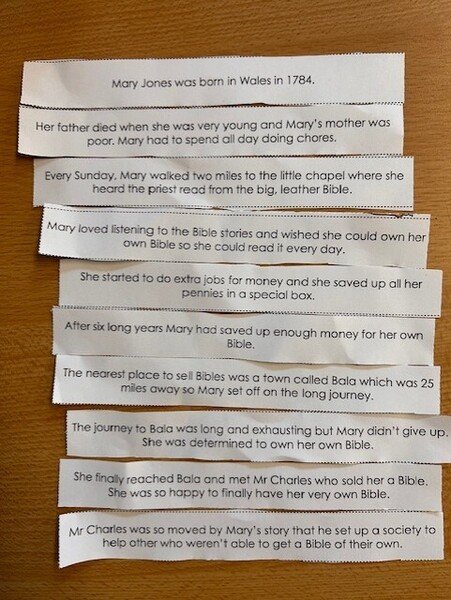 Mary Jones was born in Wales in 1784.
Her father died when she was very young and Mary's mother was
poor. Mary had to spend all day doing chores.
Every Sunday, Mary walked two miles to the little chapel where she
heard the priest read from the big, leather Bible.
Mary loved listening to the Bible stories and wished she could own her
own Bible so she could read it every day.
She started to do extra jobs for money and she saved up all her
pennies in a special box.
After six long years Mary had saved up enough money for her own
Bible.
The nearest place to sell Bibles was a town called Bala which was 25
miles away so Mary set off on the long journey.
The journey to Bala was long and exhausting but Mary didn't give up.
She was determined to own her own Bible.
She finally reached Bala and met Mr Charles who sold her a Bible.
She was so happy to finally have her very own Bible.
Mr Charles was so moved by Mary's story that he set up a society to
help other who weren't able to get a Bible of their own.